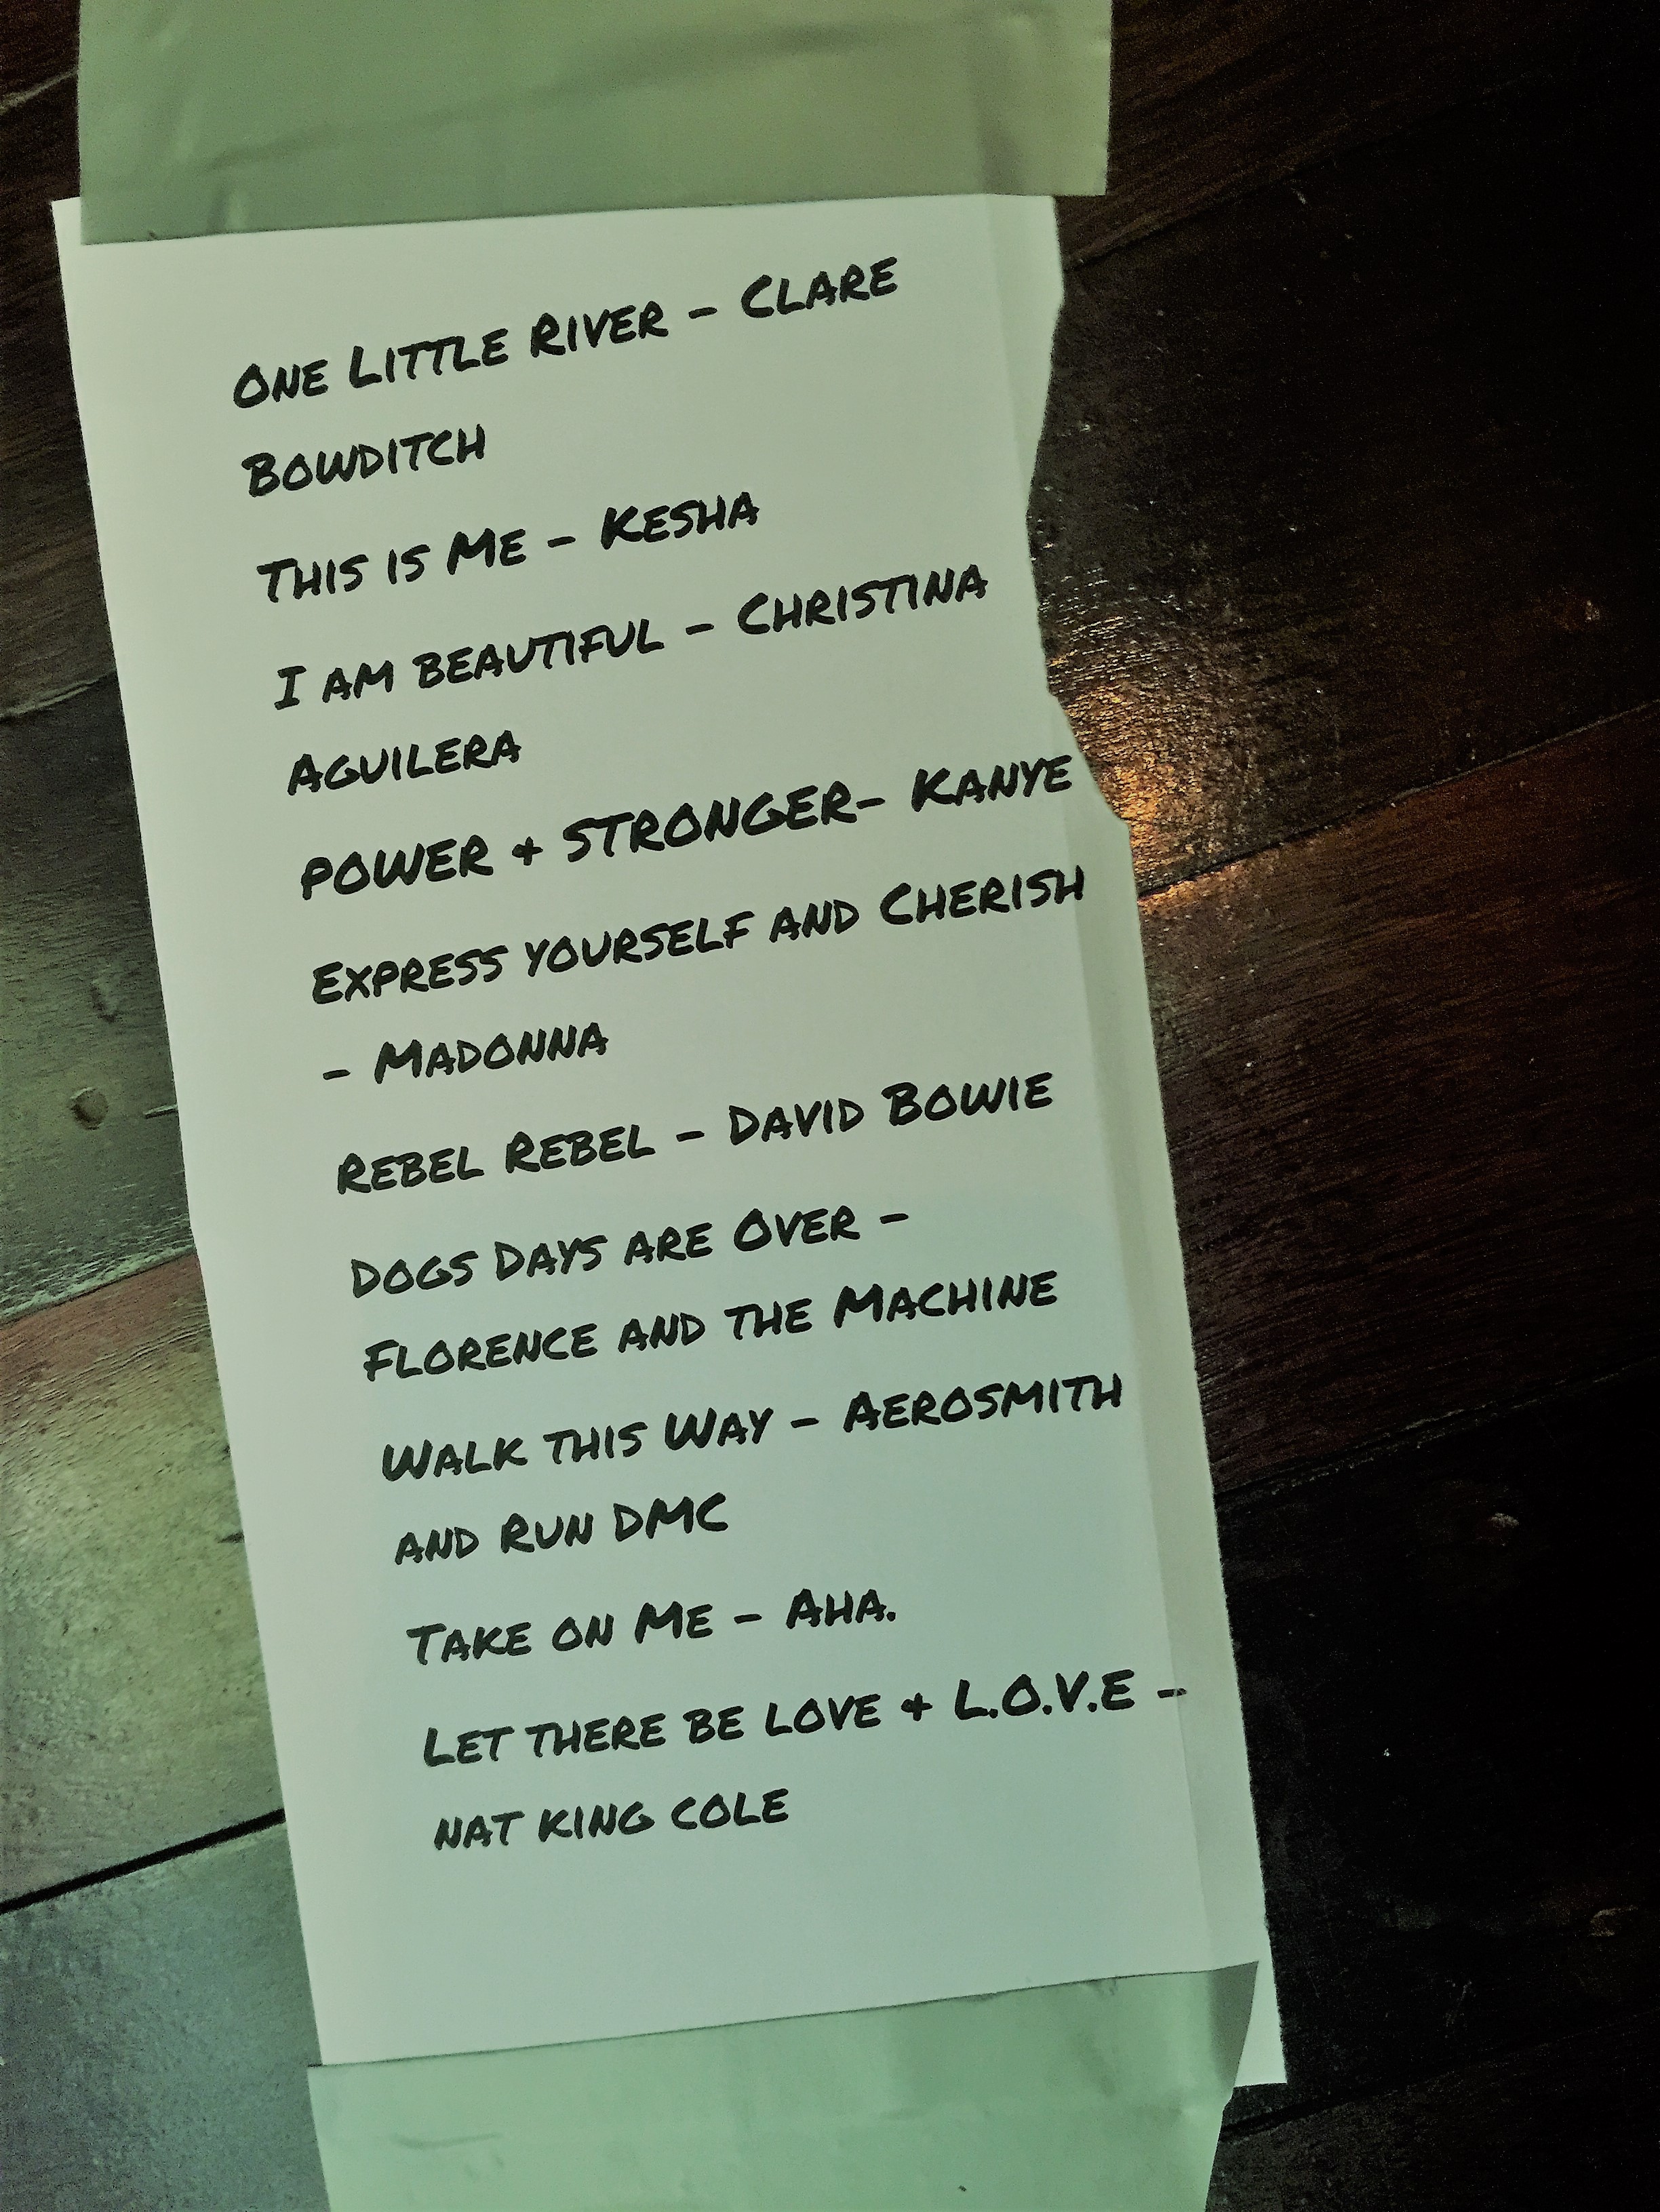 One Little River - Clare
Bowditch
This is Me - Kesha
I am beautiful - Christina
Aguilera
POWER & STRONGER- Kanye
Express yourself and Cherish
- Madonna
Rebel Rebel - David Bowie
Dogs Days are Over -
Florence and the Machine
Walk this Way - Aerosmith
and Run DMC
Take on Me - Aha.
Let there be love & L.O.V.E -
nat king cole